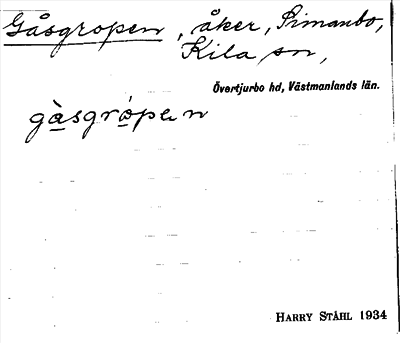 Gåsgropen, åker, Simanbo,
Kila sn,
Övertjurbo hd, Västmanlands län.
gàsgrópen
HARRY STÅHL 1934